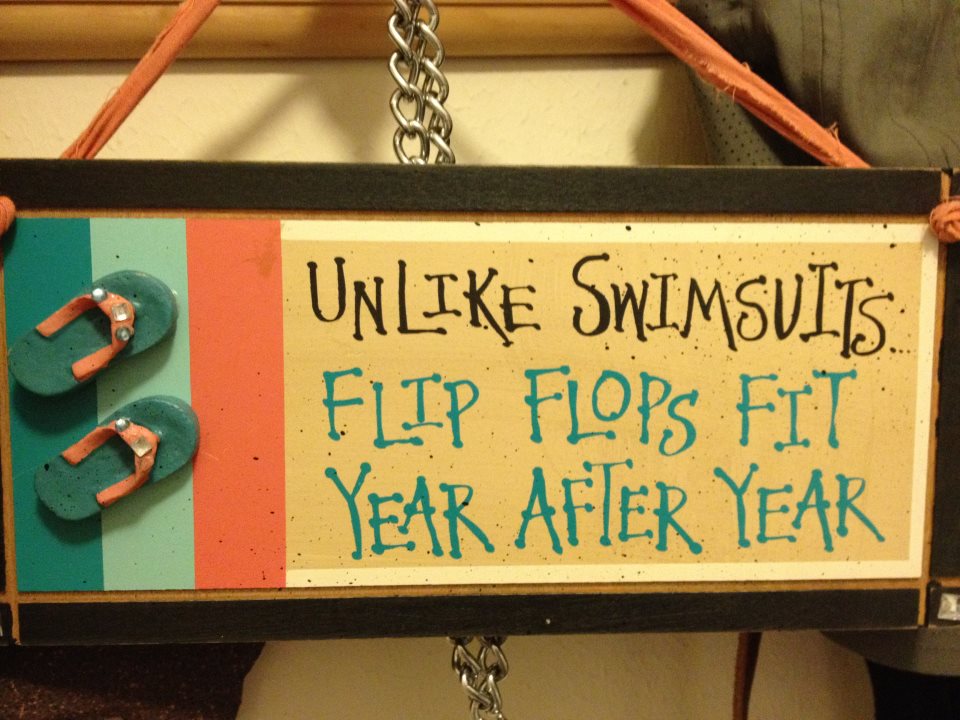 UNLIKE SWIMSUITS...
FLIP FLOPS FIT
YEAR AFTER YEAR